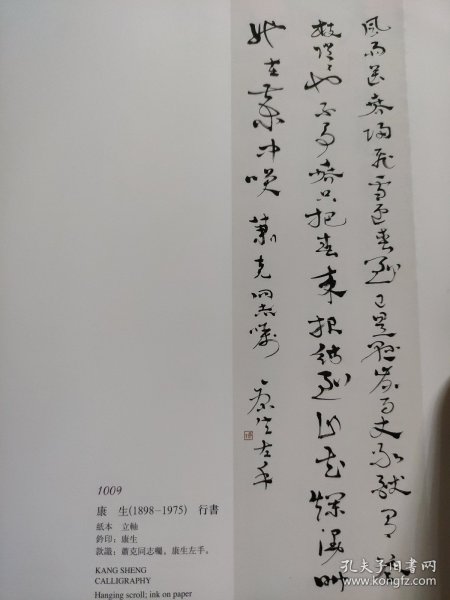 風雨送春歸飛雪迎春到已是懸崖百丈冰猶有
枝俏也不爭春只把春來報待到山花爛漫時
她在叢中笑 蕭克同志囑 康生左手
1009
康 生(1898-1975) 行書
紙本 立軸
鈐印:康生
款識:蕭克同志囑。康生左手。
KANG SHENG
CALLIGRAPHY
Hanging scroll; ink on paper
孔夫子旧书网